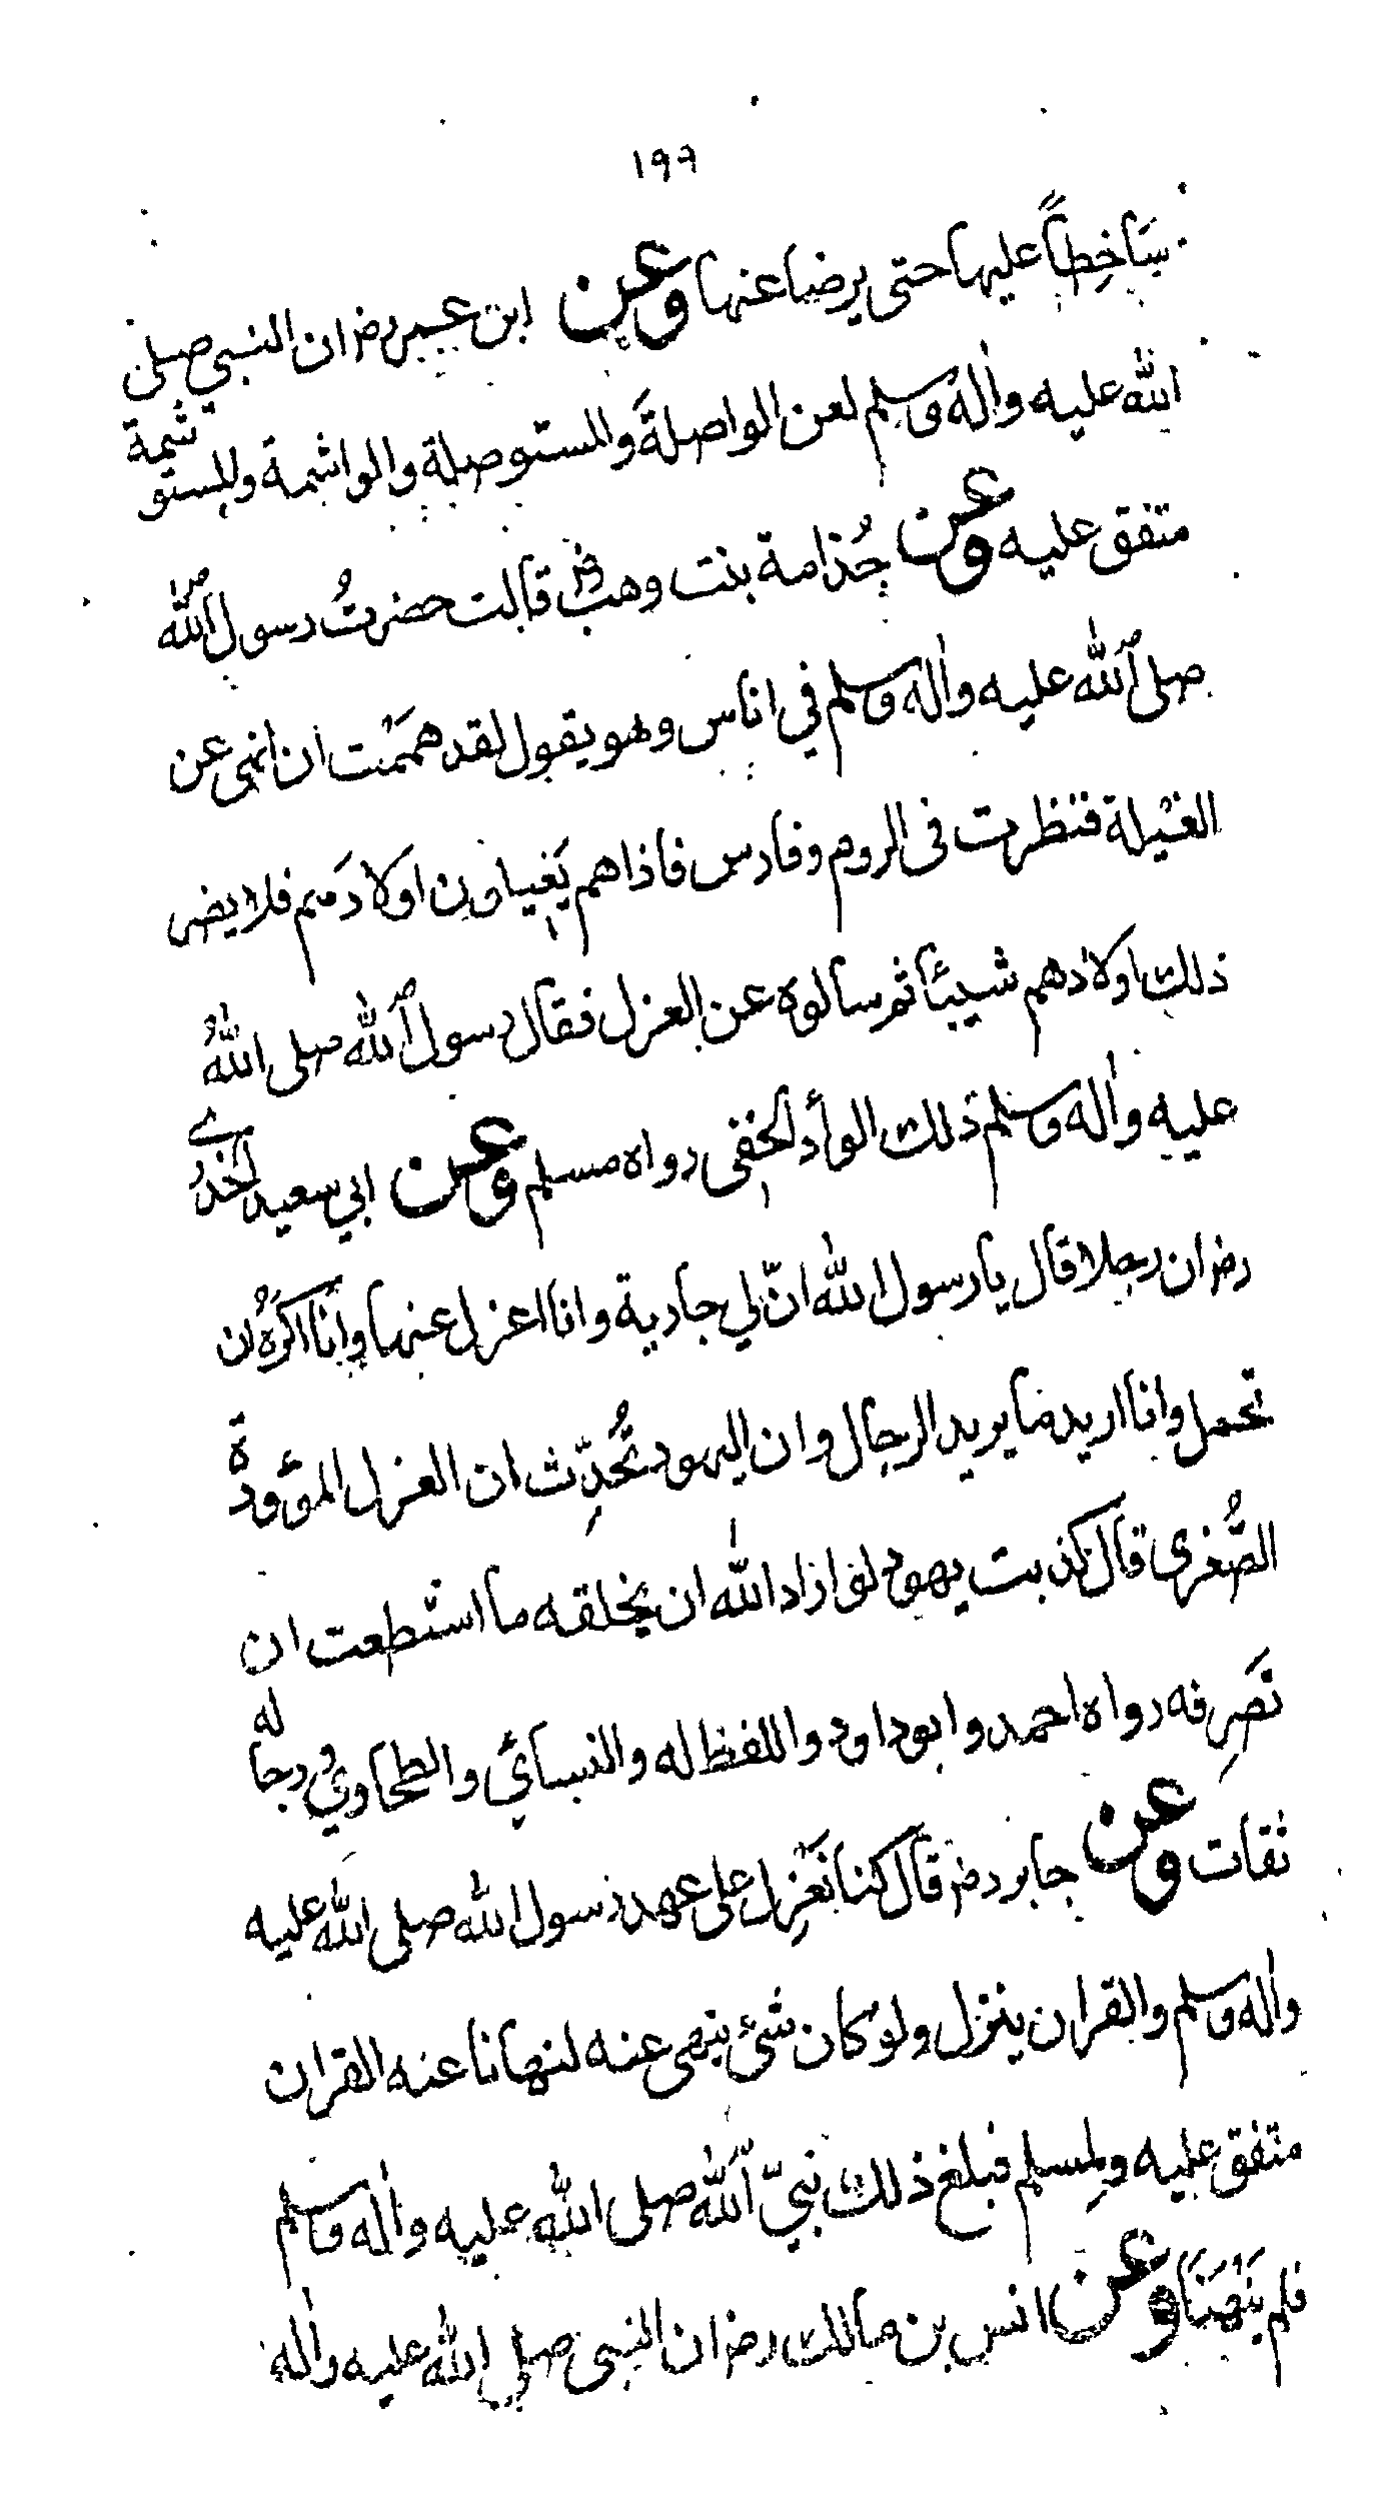 ١٩٦
ساخِطاً عليها حتى يرضا عنها وعن ابن عمر رض ان النبي صلى
الله عليه واٰله وسلم لعن الواصلةَ والمستوصلة والواشمة والمستوشمة
متفق عليه وعن جُذامة بنت وهب رض قالت حضرتُ رسول الله
صلى الله عليه واٰله وسلم في اناس وهو يقول لقد هممْت ان انهى عن
الغيْلة فنظرت فى الروم وفارس فاذاهم يَغيلون اولادَهم فلا يضر
ذلك اولادهم شيئاً ثم سالوه عن العزل فقال رسول الله صلى اللهُ
عليه واٰله وسلم ذلك الوأد الخفى رواه مسلم وعن ابي سعيد الخدُري
رض ان رجلا قال يا رسول الله انّ لي جارية وانا اعزل عنها وانَا اكرَهُ ان
تحمل وانا اريد ما يريد الرجال وان اليهود تُحدِّث ان العزل المؤودة
الصُّغرى قال كذبت يهود لو اراد الله ان يخلقه ما استطعت ان
تَصرِفه رواه احمد وابوداود واللفظ له والنسائي والطحاوي ورجاله
ثقات وعن جابر رض قال كنا نَعْزِل على عهد رسول الله صلى الله عليه
واٰله وسلم والقران ينزل ولو كان شئ ينهى عنه لنهانا عنه القران
متفق عليه ولِمسلم فبلغ ذلك نبيّ الله صلى الله عليه واٰله وسلم
فلم يَنْهَنَا وعن انس بن مالك رض ان النبى صلى الله عليه واٰله